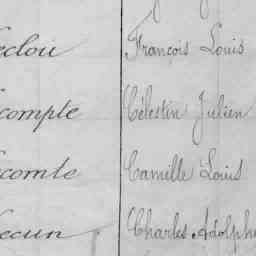 eclou François Louis
compte Célestin Julien
comte Camille Louis
ecun Charles Adolphe